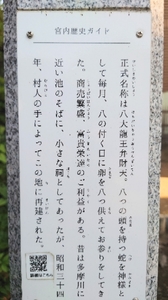 宮内歴史ガイド
正式名称は八大龍王弁財天、八つの頭を持つ蛇を神様と
して毎月、八の付く日に卵を八つ供えてお参りをしてき
た。商売繁盛、富貴栄達のご利益がある。昔は多摩川に
近い池のそばに、小さな祠としてあったが、昭和二十四
年、村人の手によってこの地に再建された。